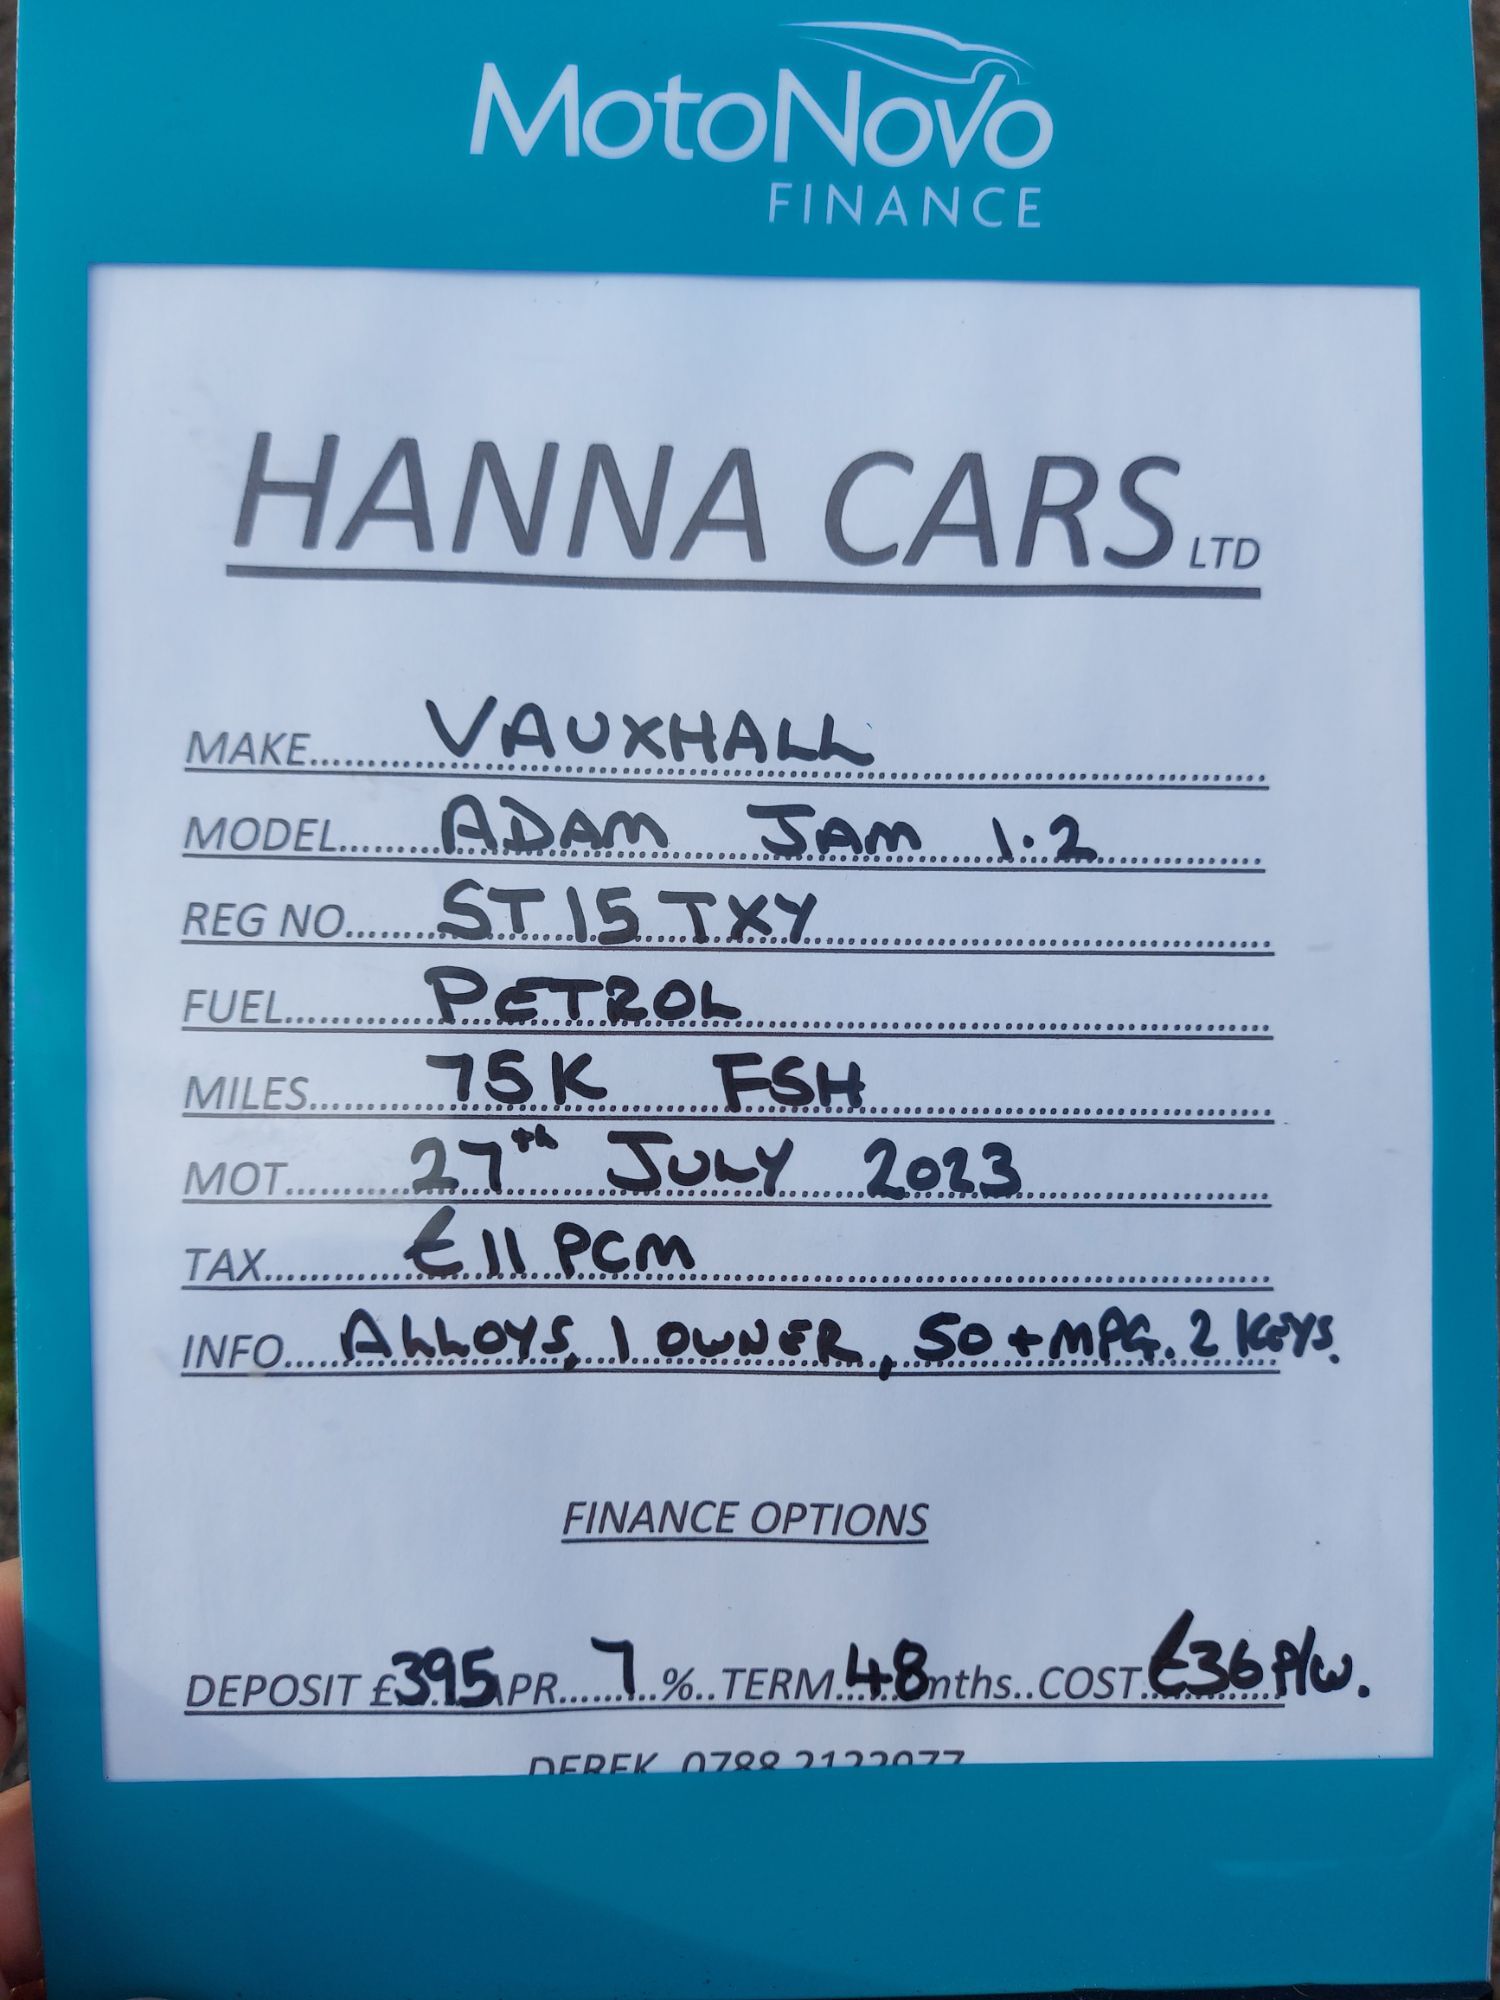 MotoNovo
FINANCE
HANNA CARS LTD
MAKE.....VAUXHALL.....
MODEL.....ADAM JAM 1.2.....
REG NO.....ST15 TXY.....
FUEL.....PETROL.....
MILES.....75K FSH.....
MOT.....27th JULY 2023.....
TAX.....£11 PCM.....
INFO....ALLOYS, 1 OWNER, 50+MPG. 2 KEYS.
FINANCE OPTIONS
DEPOSIT £395 APR.....7..%..TERM..48mnths..COST.£36 P/W.
DEREK 0788 2122077